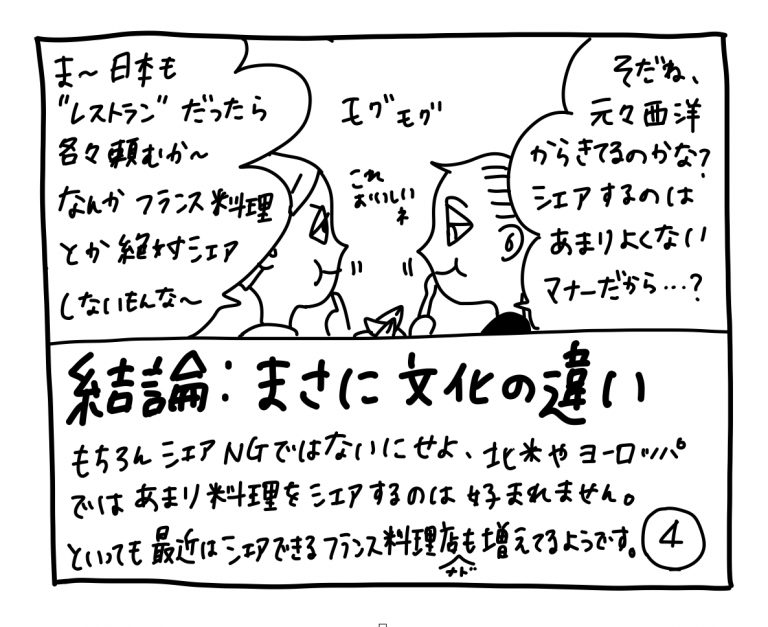 そだね、
元々西洋
からきてるのかな?
シェアするのは
あまりよくない
マナーだから…?
モグモグ
これ
おいしい
ネ
ま〜日本も
"レストラン"だったら
各々頼むか〜
なんかフランス料理
とか絶対シェア
しないもんな〜
結論:まさに文化の違い
もちろんシェアNGではないにせよ、北米やヨーロッパ
ではあまり料理をシェアするのは好まれません。
といっても最近はシェアできるフランス料理店も増えてるようです。
ナド
4